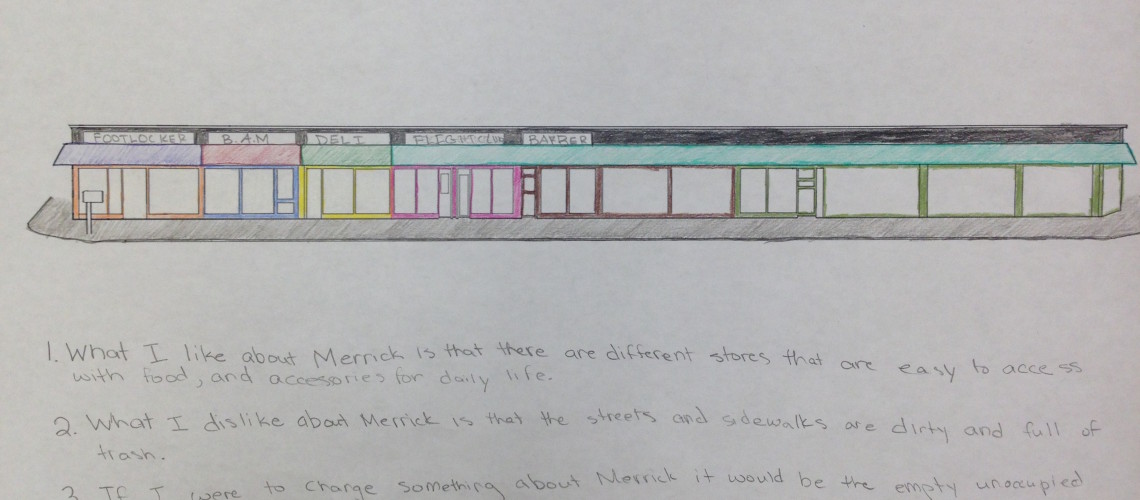 FOOTLOCKER B.A.M DELI FLIGHTCLUB BARBER
1. What I like about Merrick is that there are different stores that are easy to access
with food, and accesories for daily life.
2. What I dislike about Merrick is that the streets and sidewalks are dirty and full of
trash.
3. If I were to change something about Merrick it would be the empty unoccupied